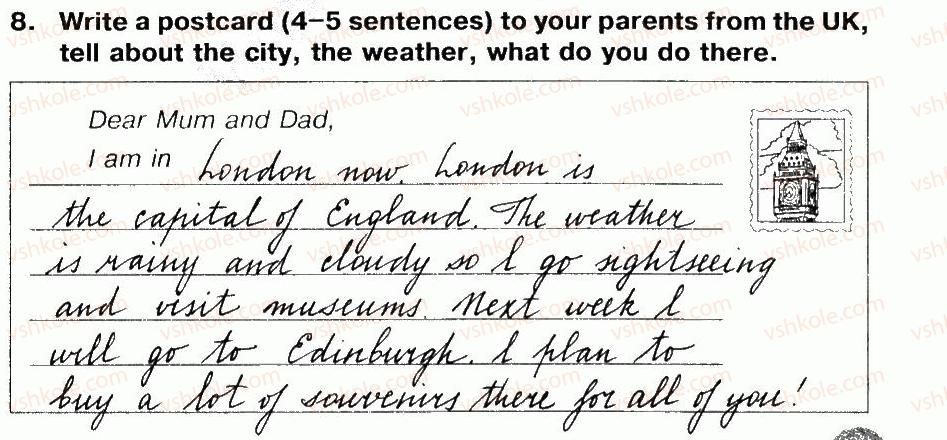 8. Write a postcard (4–5 sentences) to your parents from the UK,
tell about the city, the weather, what do you do there.
Dear Mum and Dad,
I am in London now. London is
the capital of England. The weather
is rainy and cloudy so I go sightseeing
and visit museums. Next week I
will go to Edinburgh. I plan to
buy a lot of souvenirs there for all of you!